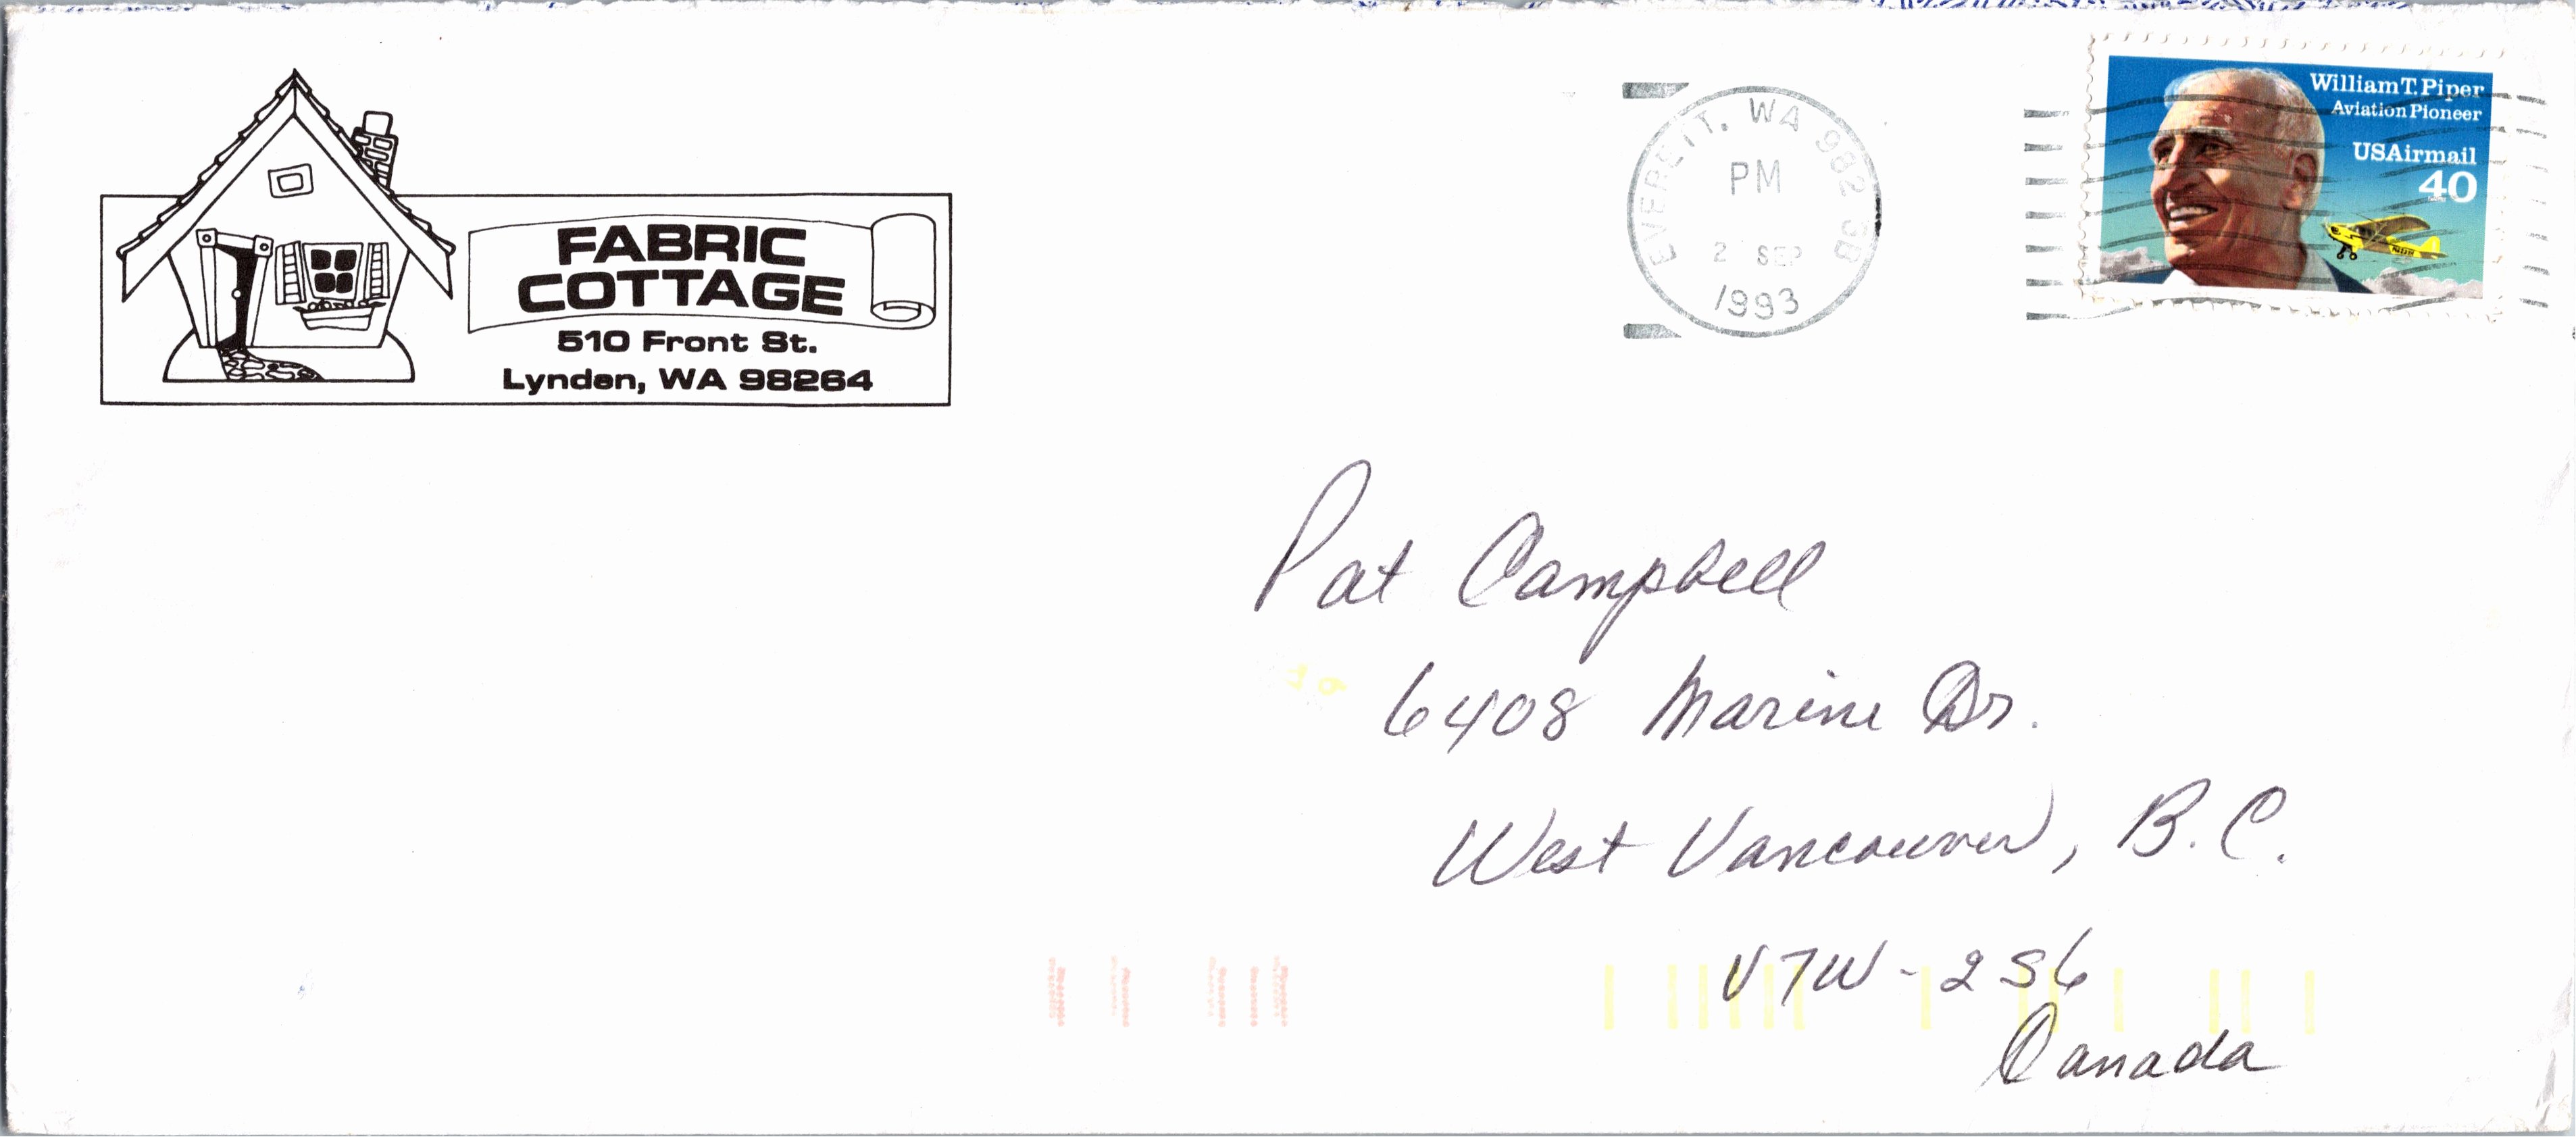 FABRIC
COTTAGE
510 Front St.
Lynden, WA 98264
EVERETT, WA 982 GB
PM
2 SEP
1993
William T. Piper
Aviation Pioneer
USAirmail
40
Pat Campbell
6408 Marine Dr.
West Vancouver, B.C.
V7W-2S6
Canada